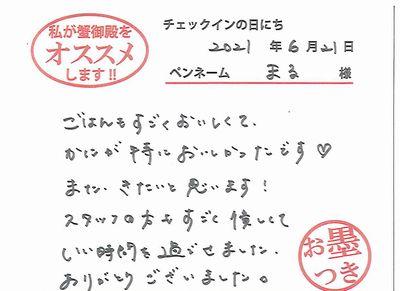 私が蟹御殿を
オススメ
します!!
チェックインの日にち
2021 年 6 月 21 日
ペンネーム まる 様
ごはんもすごくおいしくて、
かにが特においしかったです♡
また、きたいと思います!
スタッフの方もすごく優しくて
いい時間を過ごせました。
ありがとうございました。
お墨
つき